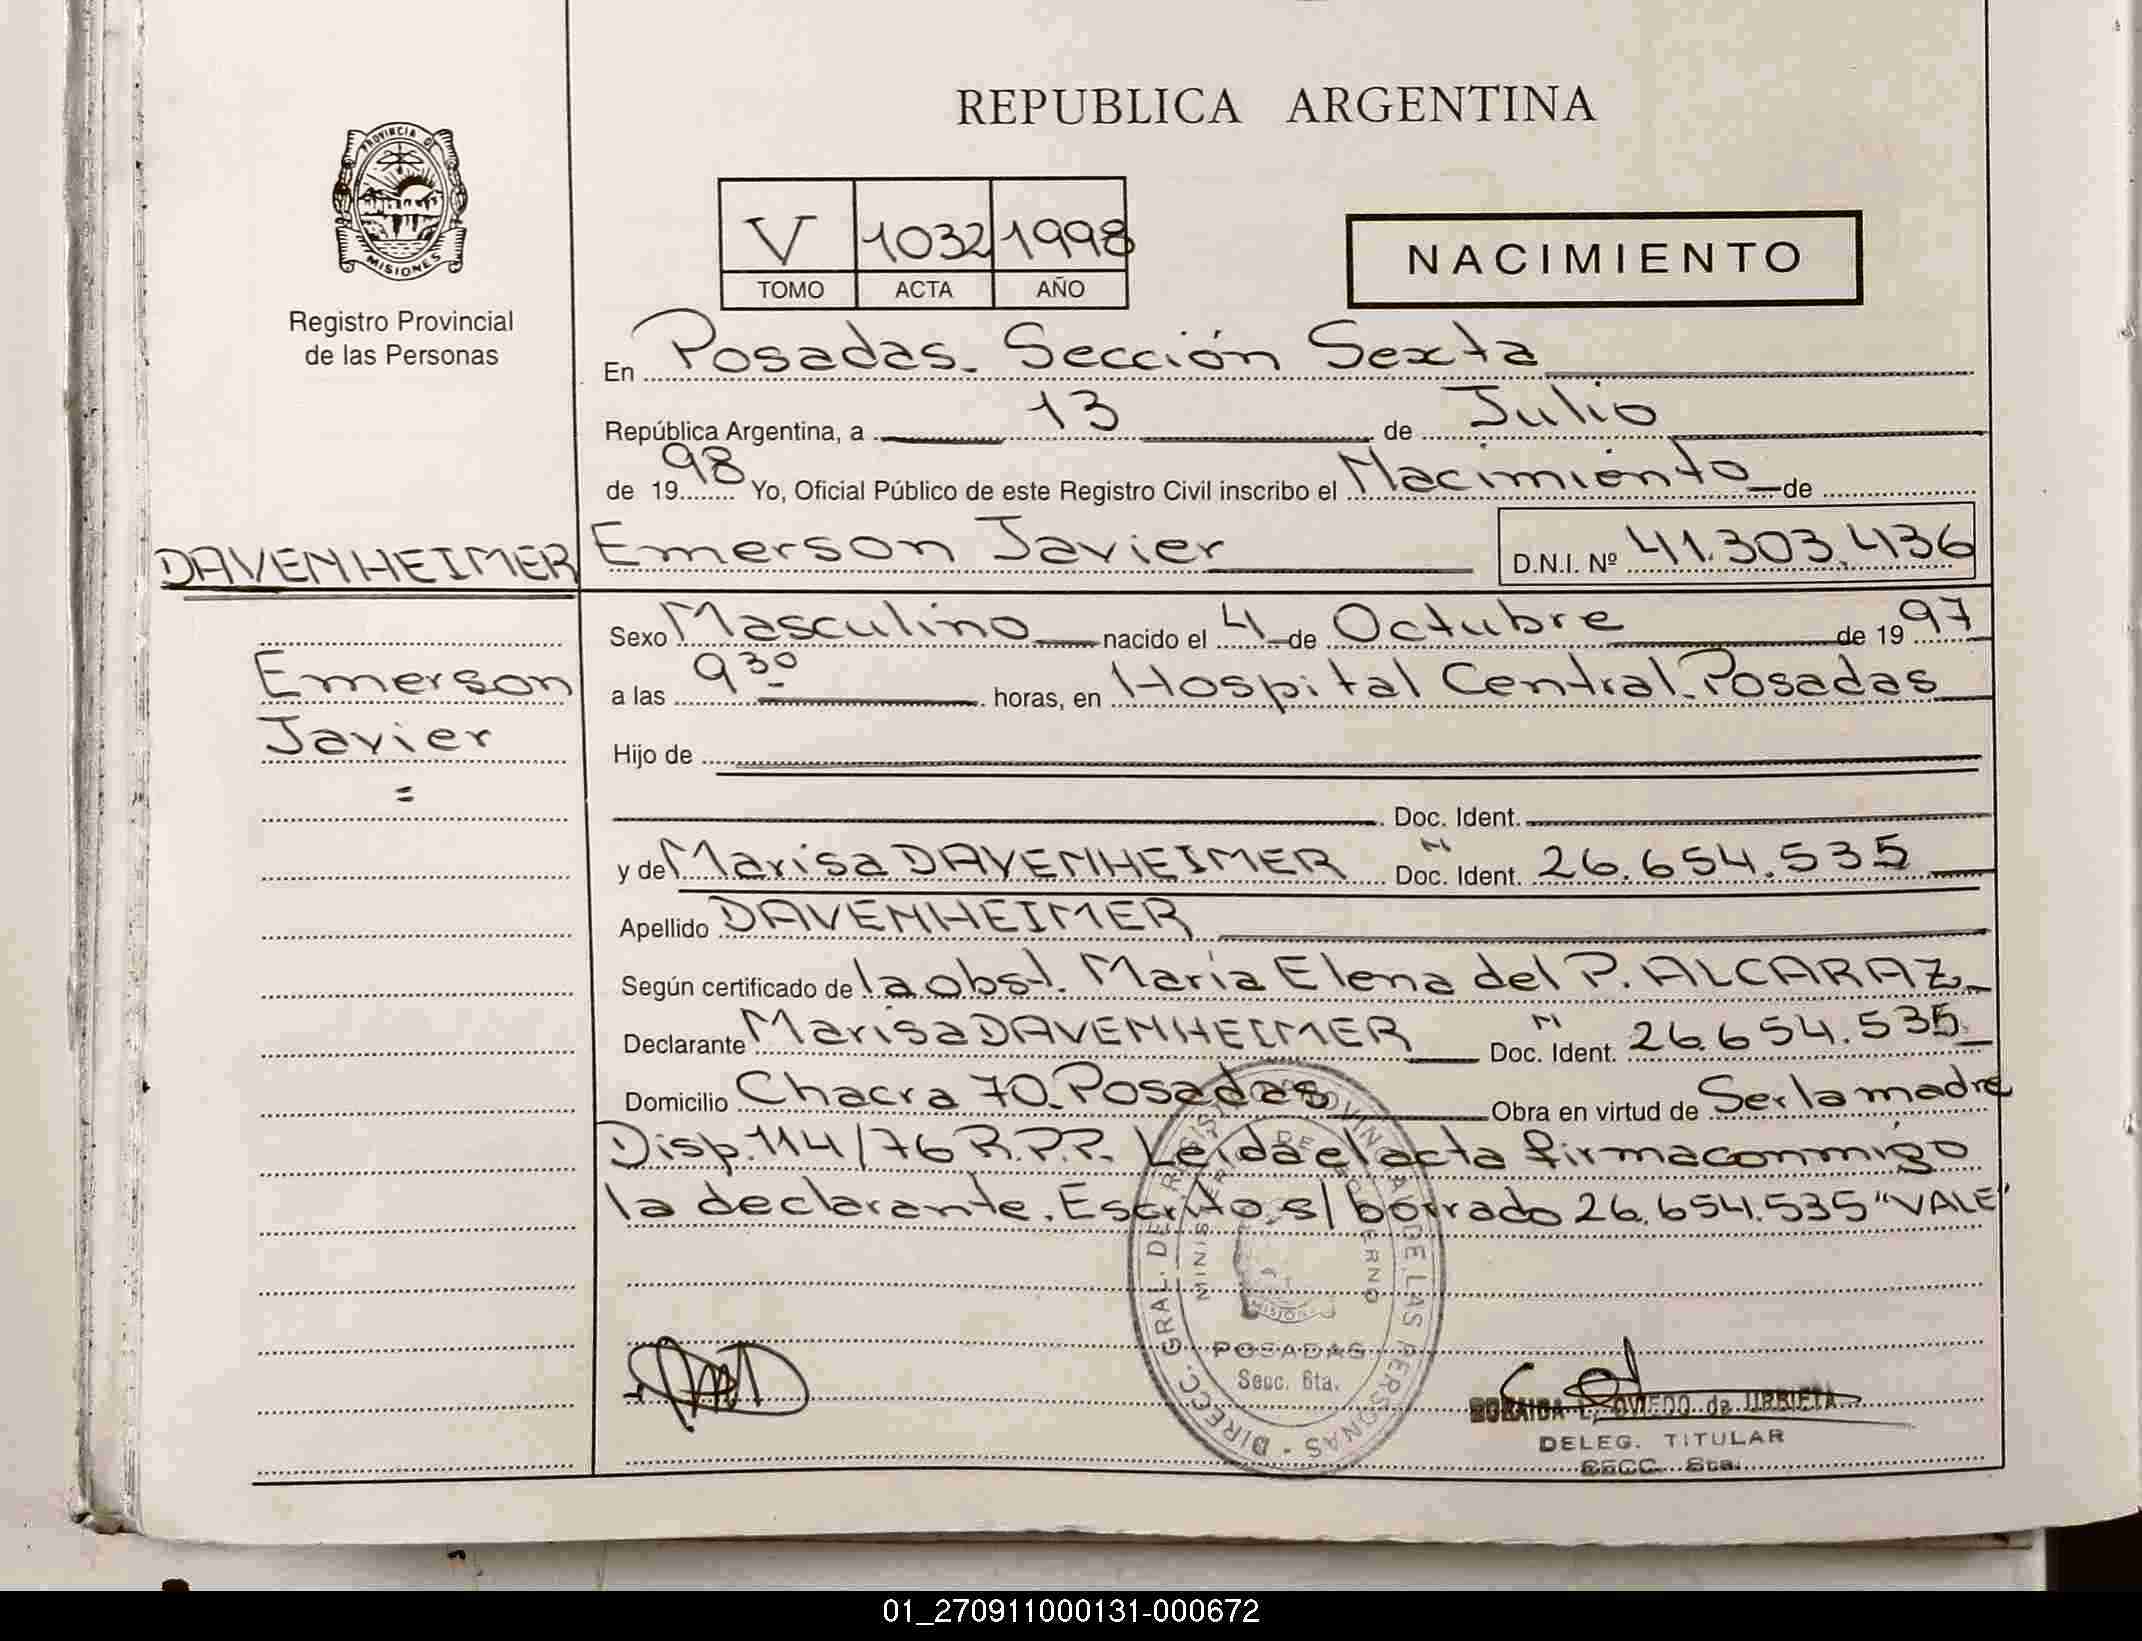 REPUBLICA ARGENTINA
PROVINCIA DE
MISIONES
Registro Provincial
de las Personas
V 1032 1998
TOMO ACTA AÑO
NACIMIENTO
En Posadas. Sección Sexta
República Argentina, a 13 de Julio
de 1998 Yo, Oficial Público de este Registro Civil inscribo el Nacimiento de
DAVENHEIMER Emerson Javier D.N.I. Nº 41.303.436
Sexo Masculino nacido el 4 de Octubre de 1997
Emerson
a las 9 30 horas, en Hospital Central. Posadas
Javier
=
Hijo de
Doc. Ident.
y de Marisa DAVENHEIMER Doc. Ident. N 26.654.535
Apellido DAVENHEIMER
Según certificado de la obst. María Elena del P. ALCARAZ
Declarante Marisa DAVENHEIMER Doc. Ident. N 26.654.535
Domicilio Chacra 70. Posadas Obra en virtud de Ser la madre
Disp. 114/76 R.P.P. Leída el acta firma conmigo
la declarante. Escrito s/ borrado 26.654.535 "VALE"
DIRECC. GRAL. DE REGISTRO PROVINCIAL DE LAS PERSONAS
MINISTERIO DE GOBIERNO
MISIONES
POSADAS
Secc. 6ta.
OVIEDO de URRIETA
DELEG. TITULAR
SECC. 6ta.
01_270911000131-000672